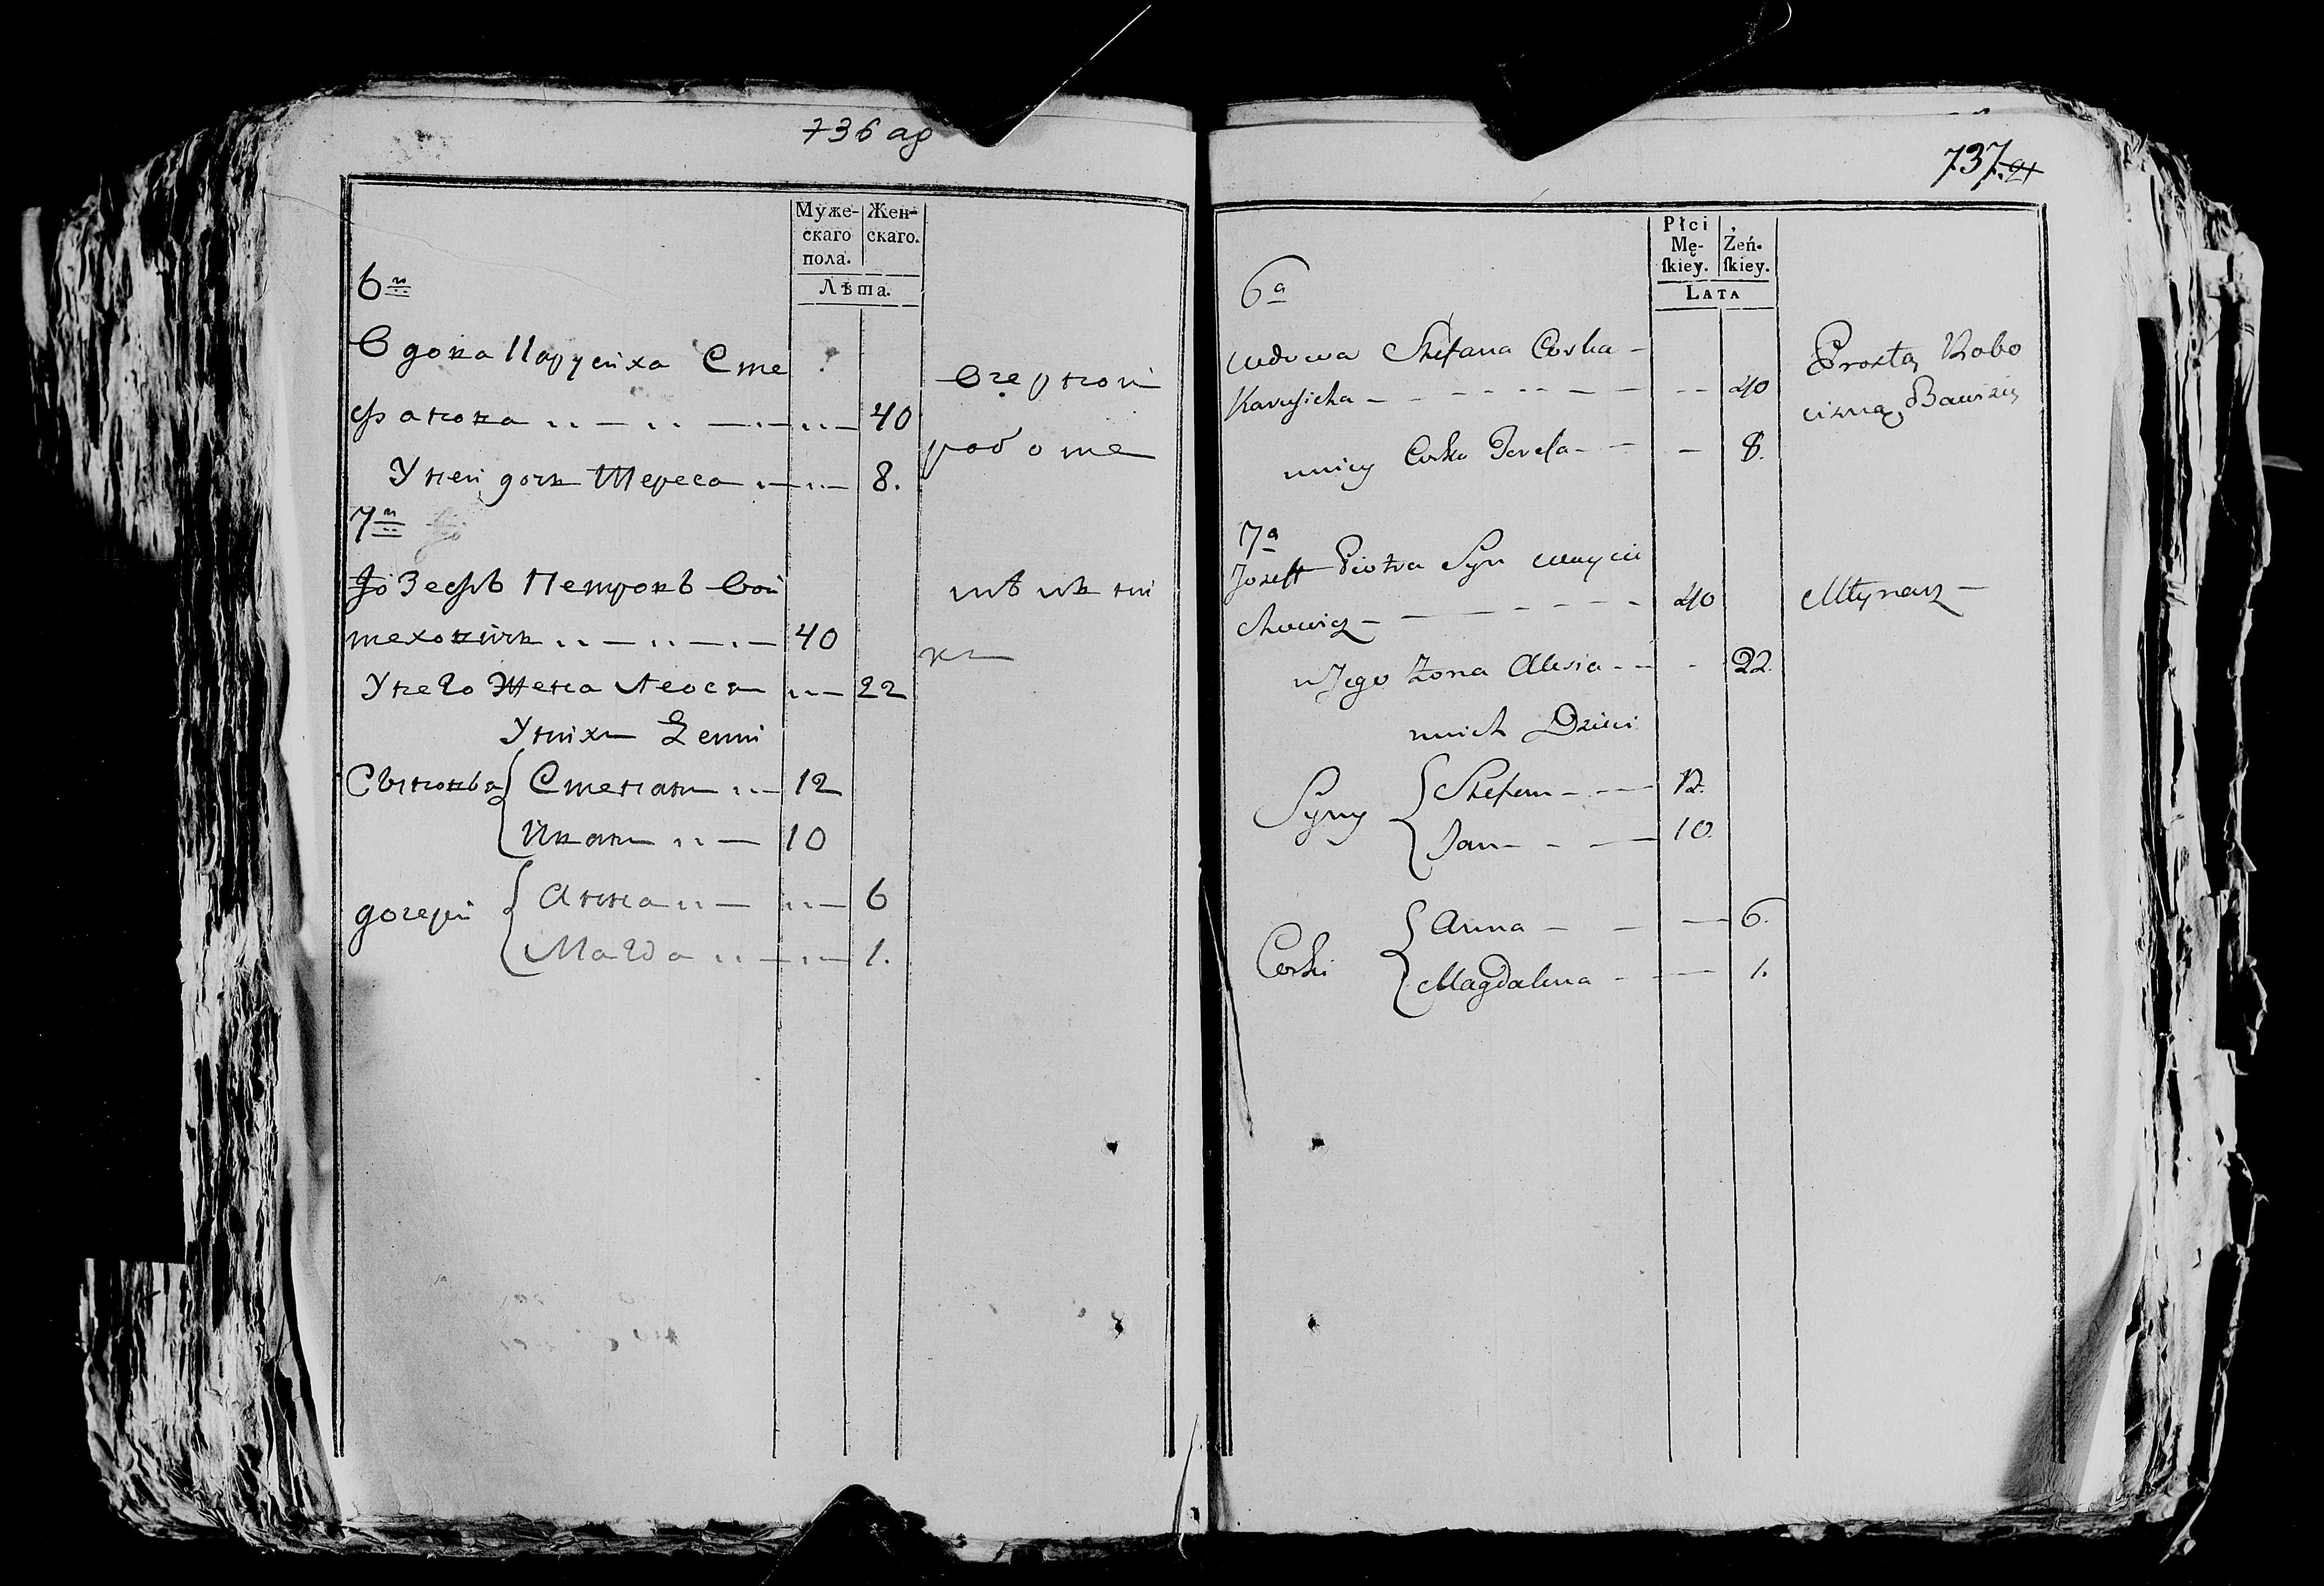 736 об
Муже- Жен-
скаго скаго.
пола.
Лѣта.
6й
Вдова Сте
фанова 40
Вчерной
работе
У ней дочь Тереса 8.
7й
Іозефъ Петровъ Вой
теховичь 40
У него жена Леося 22
У них дети
Сыновья Степан 12
Иван 10
дочери Анна 6
Магда 1.
737. 21
Płci
Mę- Żeń-
ſkiey. ſkiey.
LATA
6a
wdowa Stefana Corka
40
Prostą Robo
cizną Bawi się
Corka Teresa 8.
7a
Jozeff Piotra Syn Woycie
chowicz 40
Młynarz
u Jego Żona Alesia 22
u nich Dzieci
Syny Stefan 12.
Jan 10.
Corki Anna 6.
Magdalena 1.